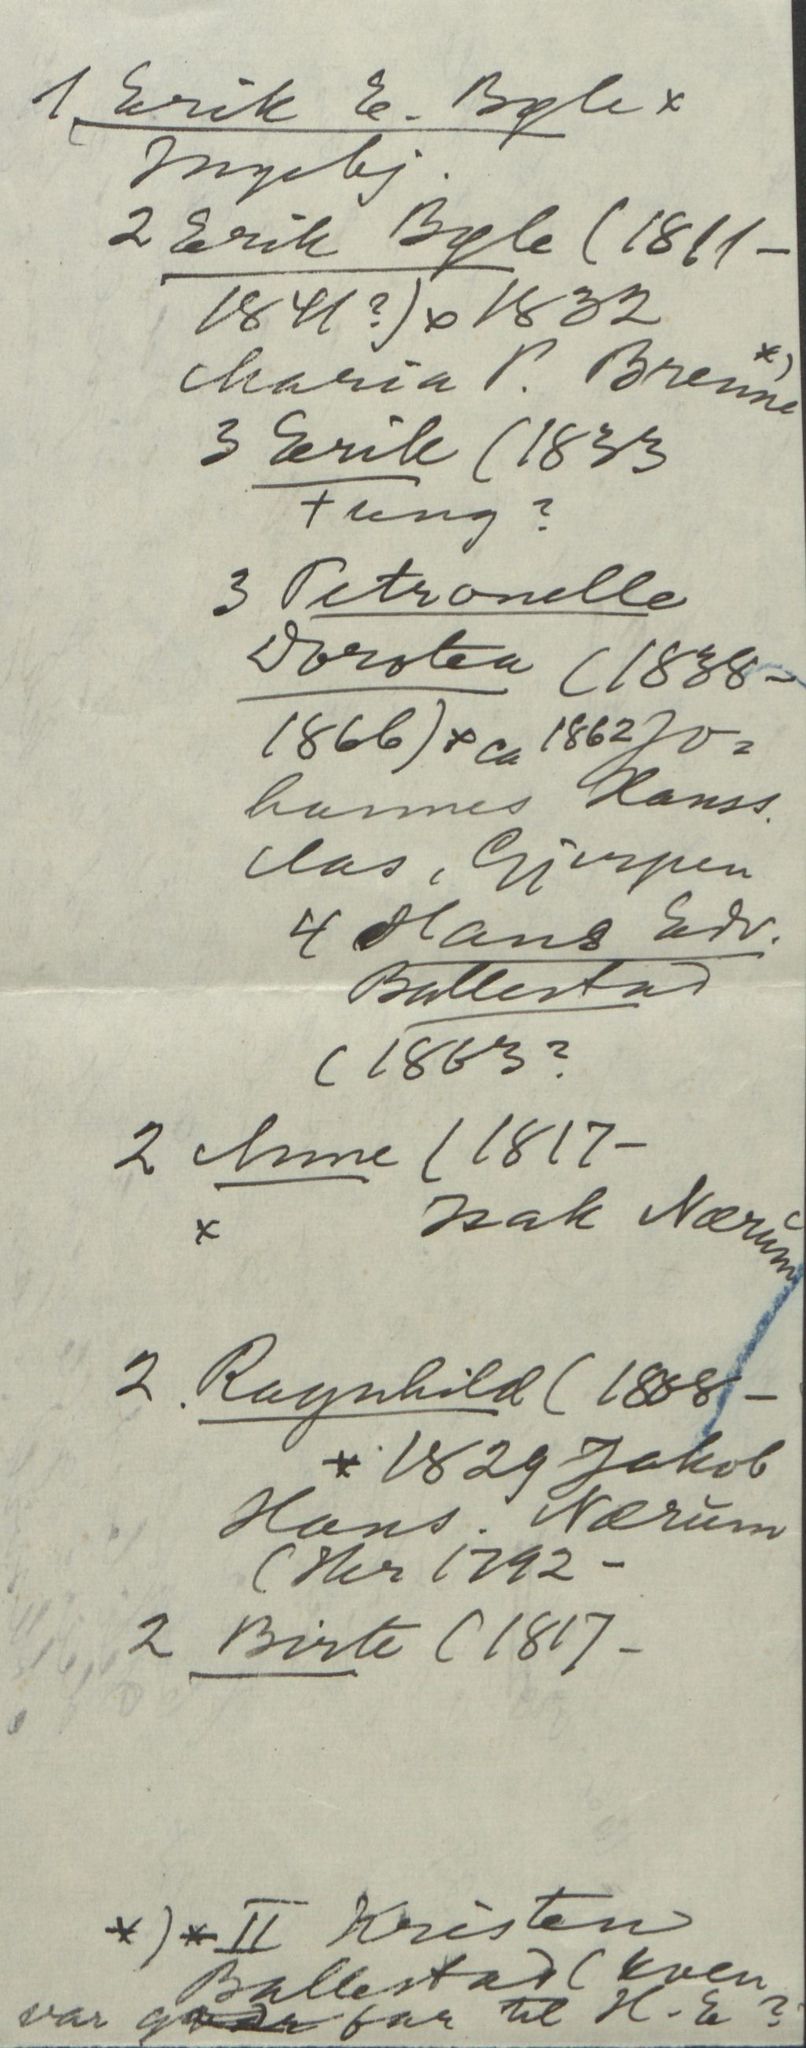 1 Erik E. Bøle x
Ingebj.
2 Erik Bøle (1811-
1841?) x 1832
Maria P. Brenne *)
3 Erik (1833
+ ung?
3 Petronelle
Dorotea (1838-
1866) x ca 1862 Jo=
hannes Hanss.
Aas, Gjerpen
4 Hans Edv.
Ballestad
(1863?
2 Anne (1817-
x Isak Nærum
2. Ragnhild (1808-
x 1829 Jakob
Hans. Nærum
(Her 1792-
2 Birte (1817-
*) x II Kristen
Ballestad (kven
var far til H.E?